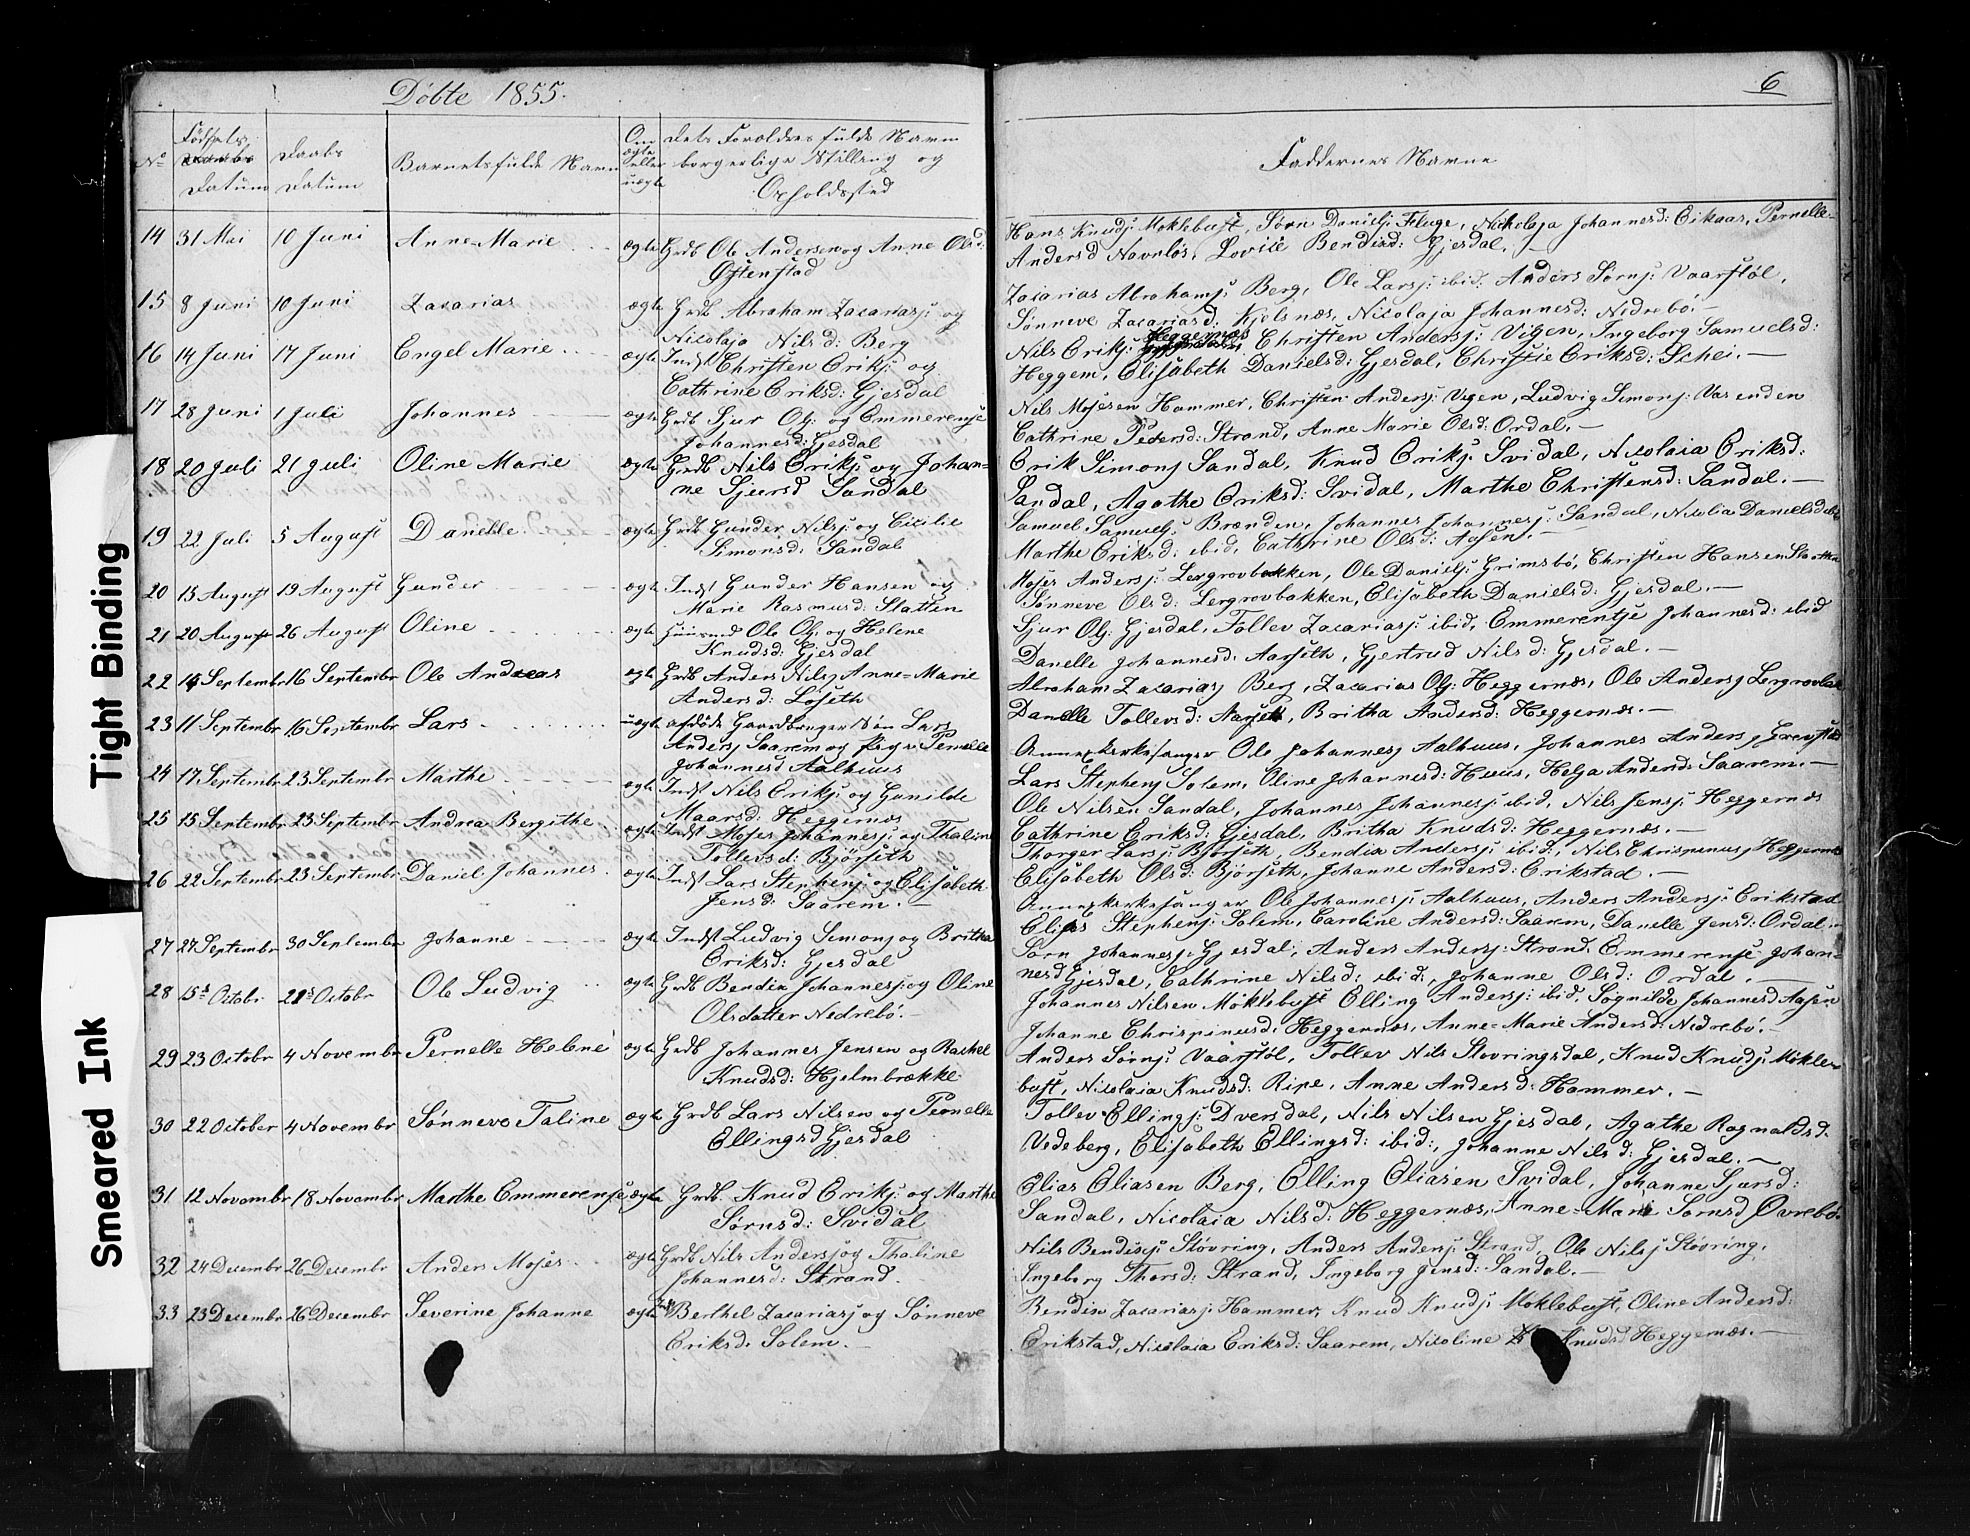 Døbte 1855.
6
No
Fødsels
Datum
Daabs
Datum
Barnets fulde Navn
Om
ægte
eller
uægte
Dets Forældres fulde Navn
borgerlige Stilling og
Opholdssted
Faddernes Navne
14 31 Mai 10 Juni Anne-Marie ægte Grdb Ole Andersen og Anne Olsd:
Østenstad
Hans Knudsj: Moklebust, Sørn Danielsj: Fluge, Nicholaja Johannesd: Eikaas, Pernelle
Andersd Navnløs, Lovise Bendixd: Gjesdal.
15 8 Juni 10 Juni Zacarias ægte Grdb Abraham Zacariasj: og
Nicolaja Nilsd: Berg
Zacarias Abrahamsj: Berg, Ole Larsj: ibid: Anders Sørnsj: Vaarstøl,
Sønneve Zacariasd: Kjelsnæs, Nicolaja Johannesd: Nedrebø.
16 14 Juni 17 Juni Engel Marie ægte Indst Christen Eriksj: og
Cathrine Eriksd: Gjesdal
Nils Eriksj: Heggernæs Christen Andersj: Vigen, Ingeborg Samuelsd:
Heggem, Elisabeth Danielsd: Gjesdal, Christie Eriksd: Schei.
17 28 Juni 1 Juli Johannes ægte Grdb Sjur Olsj: og Emmerense
Johannesd: Gjesdal
Nils Mosesen Hammer, Christen Andersj: Vigen, Ludvig Simonsj: Vasenden
Cathrine Pedersd: Strand, Anne Marie Olsd: Ordal.
18 20 Juli 21 Juli Oline Marie ægte Grdb Nils Eriksj: og Johan-
ne Sjursd Sandal
Erik Simonsj Sandal, Knud Eriksj: Svidal, Nicolaia Eriksd:
Sandal, Agathe Eriksd: Svidal, Marthe Christensd: Sandal.
19 22 Juli 5 August Danelle ægte Grdb Gunder Nilsj: og Cicilie
Simonsd: Sandal
Samuel Samuelsj: Brænden, Johannes Johannesj: Sandal, Nicolia Danielsd ibid
Marthe Eriksd: ibid, Cathrine Olsd: Aasen.
20 15 August 19 August Gunder ægte Indst Gunder Hansen og
Marie Rasmusd: Slatten
Moses Andersj: Lergrovbakken, Ole Danielsj: Grimsbø, Christen Hansen Slatten
Sønneve Olsd: Lergrovbakken, Elisabeth Danielsd: Gjesdal.
21 20 August 26 August Oline ægte Huusmd Ole Olsj: og Helene
Knudsd: Gjesdal
Sjur Olsj: Gjesdal, Tollev Zacariasj: ibid, Emmerentje Johannesd: ibid
Danelle Johannesd: Aarseth, Gjertrud Nilsd: Gjesdal.
22 14 Septembr 16 Septembr Ole Andreas ægte Grdb Anders Nilsj Anne-Marie
Andersd: Løseth
Abraham Zacariasj Berg, Zacarias Olsj: Heggernæs, Ole Andersj Lergrovbak
Danelle Tollevsd: Aarseth, Britha Andersd: Heggernæs.
23 11 Septembr 16 Septembr Lars uægte afdøde Gaardbruger Søn Lars
Andersj Saarem og Pige Pernelle
Johannesd Aalhuus
Annexkirkesanger Ole Johannesj Aalhuus, Johannes Andersj
Lars Stephensj Solem, Oline Johannesd: Huus, Helga Andersd: Saarem.
24 17 Septembr 23 Septembr Marthe ægte Indst Nils Eriksj: og Gunilde
Maarsd: Heggernæs
Ole Nilsen Sandal, Johannes Johannesj: ibid, Nils Jensj: Heggernæs
Cathrine Eriksd: Gjesdal, Britha Knudsd: Heggernæs.
25 15 Septembr 23 Septembr Andrea Bergithe ægte Indst Moses Johannesj: og Thaline
Tollevsd: Bjørseth
Thorger Larsj: Bjørseth, Bendix Andersj ibid:, Nils Chrispinusj Heggernæs
Elisabeth Olsd: Bjørseth, Johanne Andersd: Erikstad.
26 22 Septembr 23 Septembr Daniel Johannes ægte Indst Lars Stephensj og Elisabeth
Jensd: Saarem.
Annexkirkesanger Ole Johannesj: Aalhuus, Anders Andersj: Erikstad
Elias Stephensj: Solem, Caroline Andersd: Saarem, Danelle Jensd: Ordal.
27 27 Septembr 30 Septembr Johanne ægte Indst Ludvig Simonsj og Britha
Eriksd: Gjesdal
Sørn Johannesj: Gjesdal, Anders Andersj: Strand, Emmerense Johan-
nesd Gjesdal, Cathrine Nilsd: ibid:, Johanne Olsd: Ordal.
28 15d Octobr 28d Octobr Ole Ludvig ægte Grdb Bendix Johannesj: og Oline
Olsdatter Nedrebø.
Johannes Nilsen Møklebust Elling Andersj: ibid, Sognilde Johannesd Aasen
Johanne Chrispinusd: Heggernæs, Anne-Marie Andersd: Nedrebø.
29 23 Octobr 4 Novembr Pernelle Helene ægte Grdb Johannes Jensen og Rachel
Knudsd: Hjelmbrække
Anders Sørnsj: Vaarstøl, Tollev Nils Støvringsdal, Knud Knudsj: Møkle-
bust, Nicolaia Knudsd: Ripe, Anne Andersd: Hammer.
30 22 October 4 Novembr Sønneve Taline ægte Grdb Lars Nilsen og Pernelle
Ellingsd Gjesdal
Tollev Ellingsj: Dversdal, Nils Nilsen Gjesdal, Agathe Ragnaldsd:
Vedeberg, Elisabeth Ellingsd: ibid:, Johanne Nilsd: Gjesdal.
31 12 Novembr 18 Novembr Marthe Emmerense ægte Grdb. Knud Eriksj: og Marthe
Sørnsd: Svidal
Elias Eliasen Berg, Elling Eliasen Svidal, Johanne Sjursd:
Sandal, Nicolaia Nilsd: Heggernæs, Anne-Marie Sørnsd Øvrebø.
32 24 Decembr 26 Decembr Anders Moses ægte Grdb Nils Andersj og Thaline
Johannesd: Strand.
Nils Bendixsj: Støvring, Anders Andersj: Strand, Ole Nilsj Støvring,
Ingeborg Thorsd: Strand, Ingeborg Jensd: Sandal.
33 23 Decembr 26 Decembr Severine Johanne ægte Indst Berthel Zacariasj og Sønneve
Eriksd. Solem.
Bendix Zacariasj: Hammer, Knud Knudsj: Moklebust, Oline Andersd:
Erikstad, Nicolaia Eriksd: Saarem, Nicoline Knudsd Heggernæs.
Tight Binding
Smeared Ink